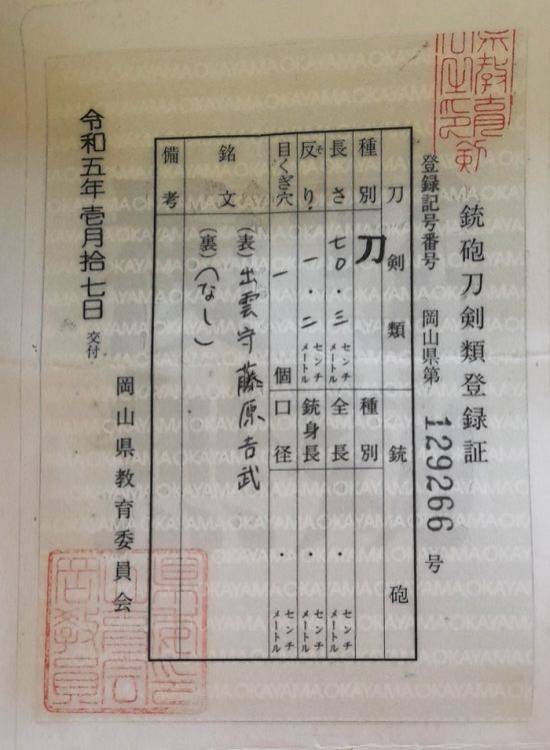 銃砲刀剣類登録証
登録記号番号 岡山県第 129266 号
刀剣類
銃砲
種別 刀
種別
長さ 七〇・三 センチメートル
全長 ・ センチメートル
反り 一・二 センチメートル
銃身長 ・ センチメートル
目くぎ穴 一 個
口径 ・ センチメートル
銘文
(表) 出雲守藤原吉武
(裏) (なし)
備考
令和五年壱月拾七日 交付
岡山県教育委員会
OKAYAMA